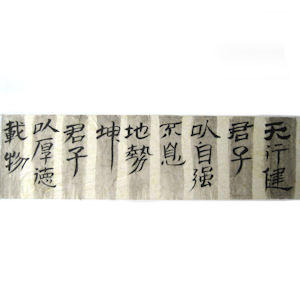 天行健
君子
以自强
不息
地勢
坤
君子
以厚德
載物